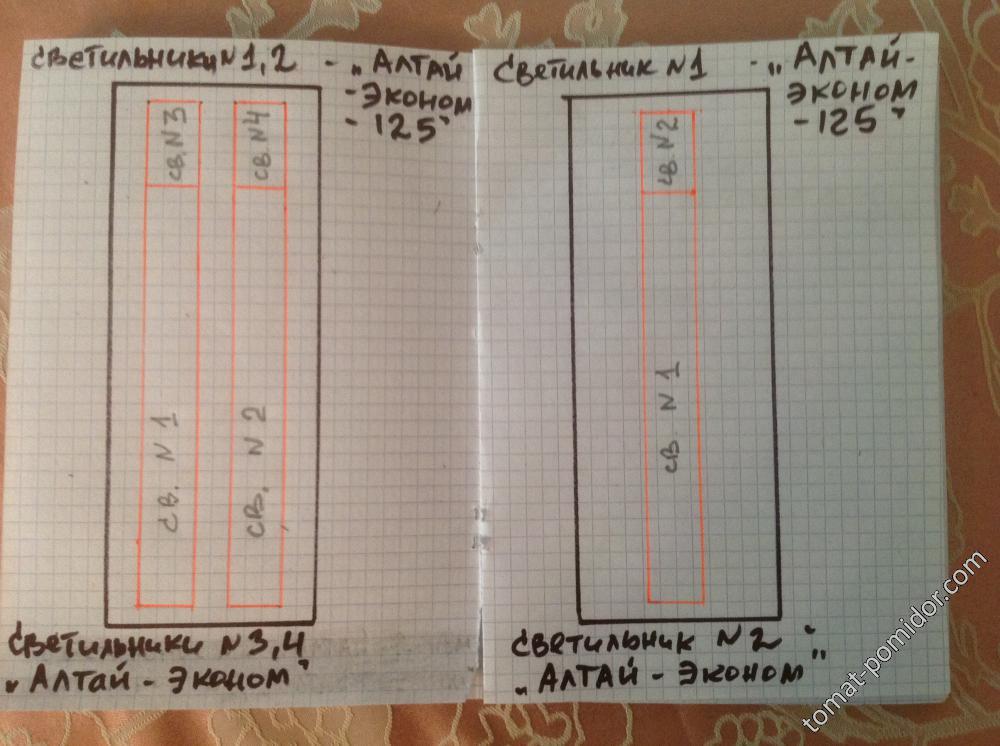 Светильники N1,2 - „Алтай
-Эконом
-125"
св. N3
св. N4
св. N 1
св. N 2
Светильники N3,4
„Алтай - Эконом"
Светильник N1 - „Алтай-
Эконом
-125"
св. N2
св. N1
Светильник N2
„Алтай - Эконом"
tomat-pomidor.com